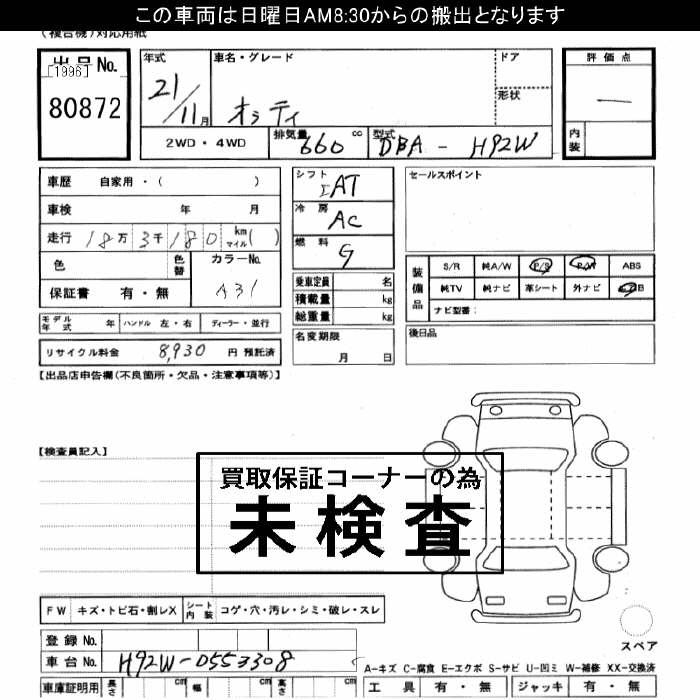 この車両は日曜日AM8:30からの搬出となります
(複合機)対応用紙
出品No.
[1996]
80872
年式
21/11月
車名・グレード
オッティ
ドア
形状
評価点
一
内装
2WD・4WD
排気量 660 cc
型式 DBA - H92W
車歴 自家用・( )
車検 年 月
走行 18万3千180 km マイル( )
色
色替
カラーNo.
A31
保証書 有・無
シフト
IAT
冷房
AC
燃料
G
乗車定員 名
積載量 kg
総重量 kg
セールスポイント
装備品
S/R 純A/W P/S P/W ABS
純TV 純ナビ 革シート 外ナビ
ナビ型番:
モデル年式 年 ハンドル 左・右 ディーラー・並行
名変期限
月 日
後日品
リサイクル料金 8,930 円 預託済
【出品店申告欄(不良箇所・欠品・注意事項等)】
【検査員記入】
買取保証コーナーの為
未検査
FW キズ・トビ石・割レX シート内装 コゲ・穴・汚レ・シミ・破レ・スレ
スペア
登録 No.
車台No. H92W-0553308
A-キズ C-腐食 E-エクボ S-サビ U-凹ミ W-補修 XX-交換済
車庫証明用 長さ cm 幅 cm 高さ cm
工具 有・無 ジャッキ 有・無